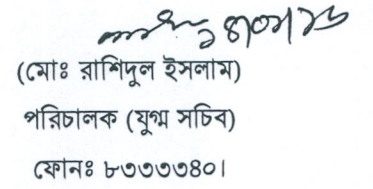 (মোঃ রাশিদুল ইসলাম)
পরিচালক (যুগ্ম সচিব)
ফোনঃ ৮৩৩৩৩৪০।